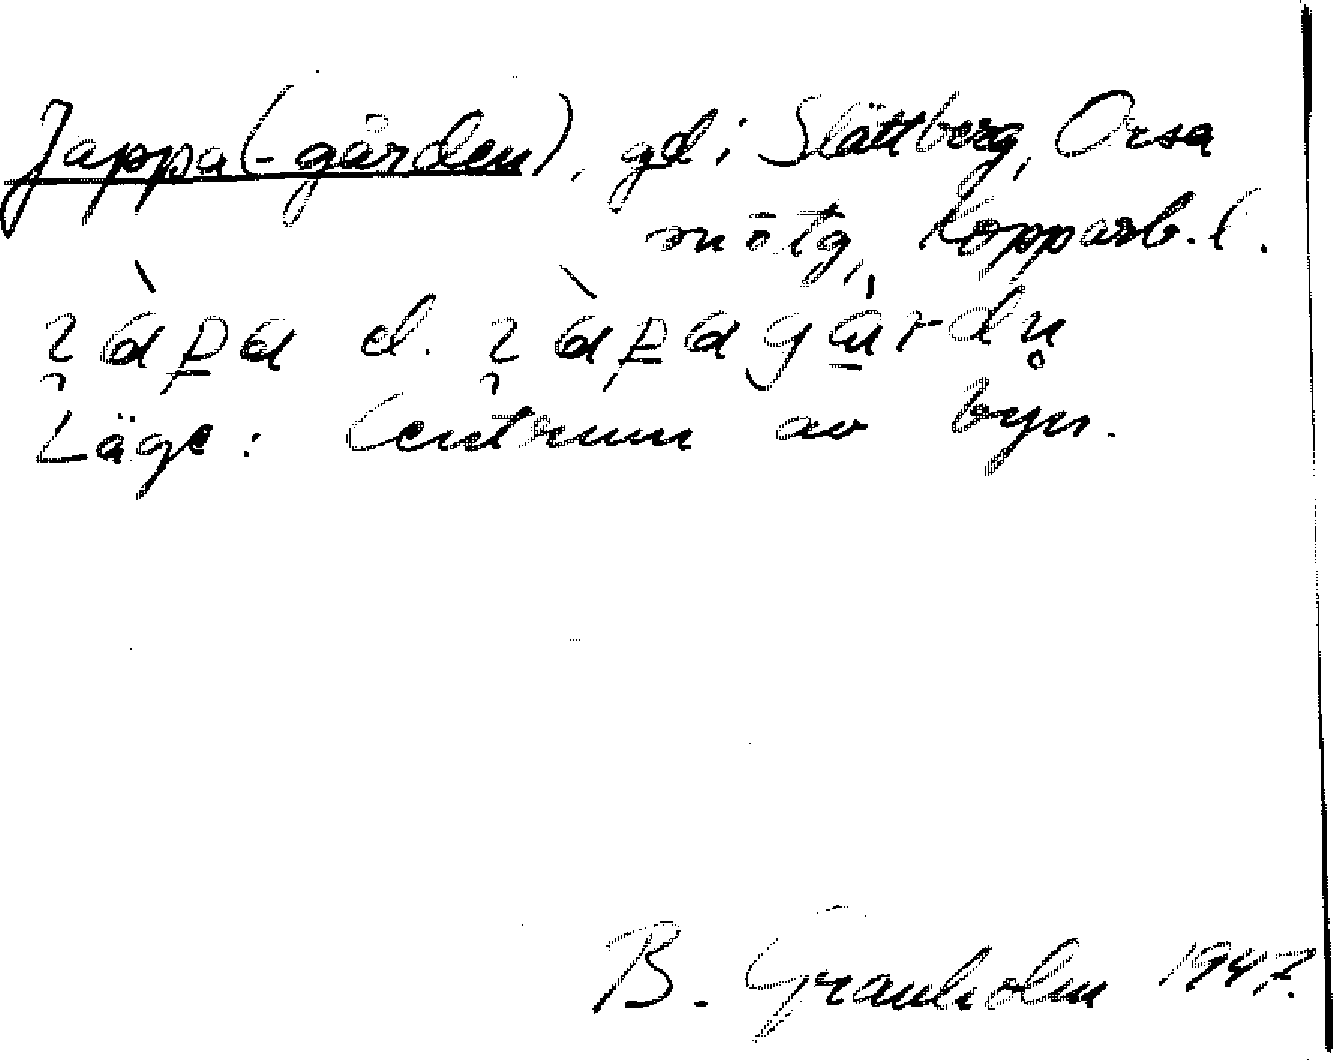 Jappa(-gården), gd i Slättberg, Orsa
mõtg, Kopparb. l.
el.
Läge: Centrum av byn.
B. Granholm 1947.